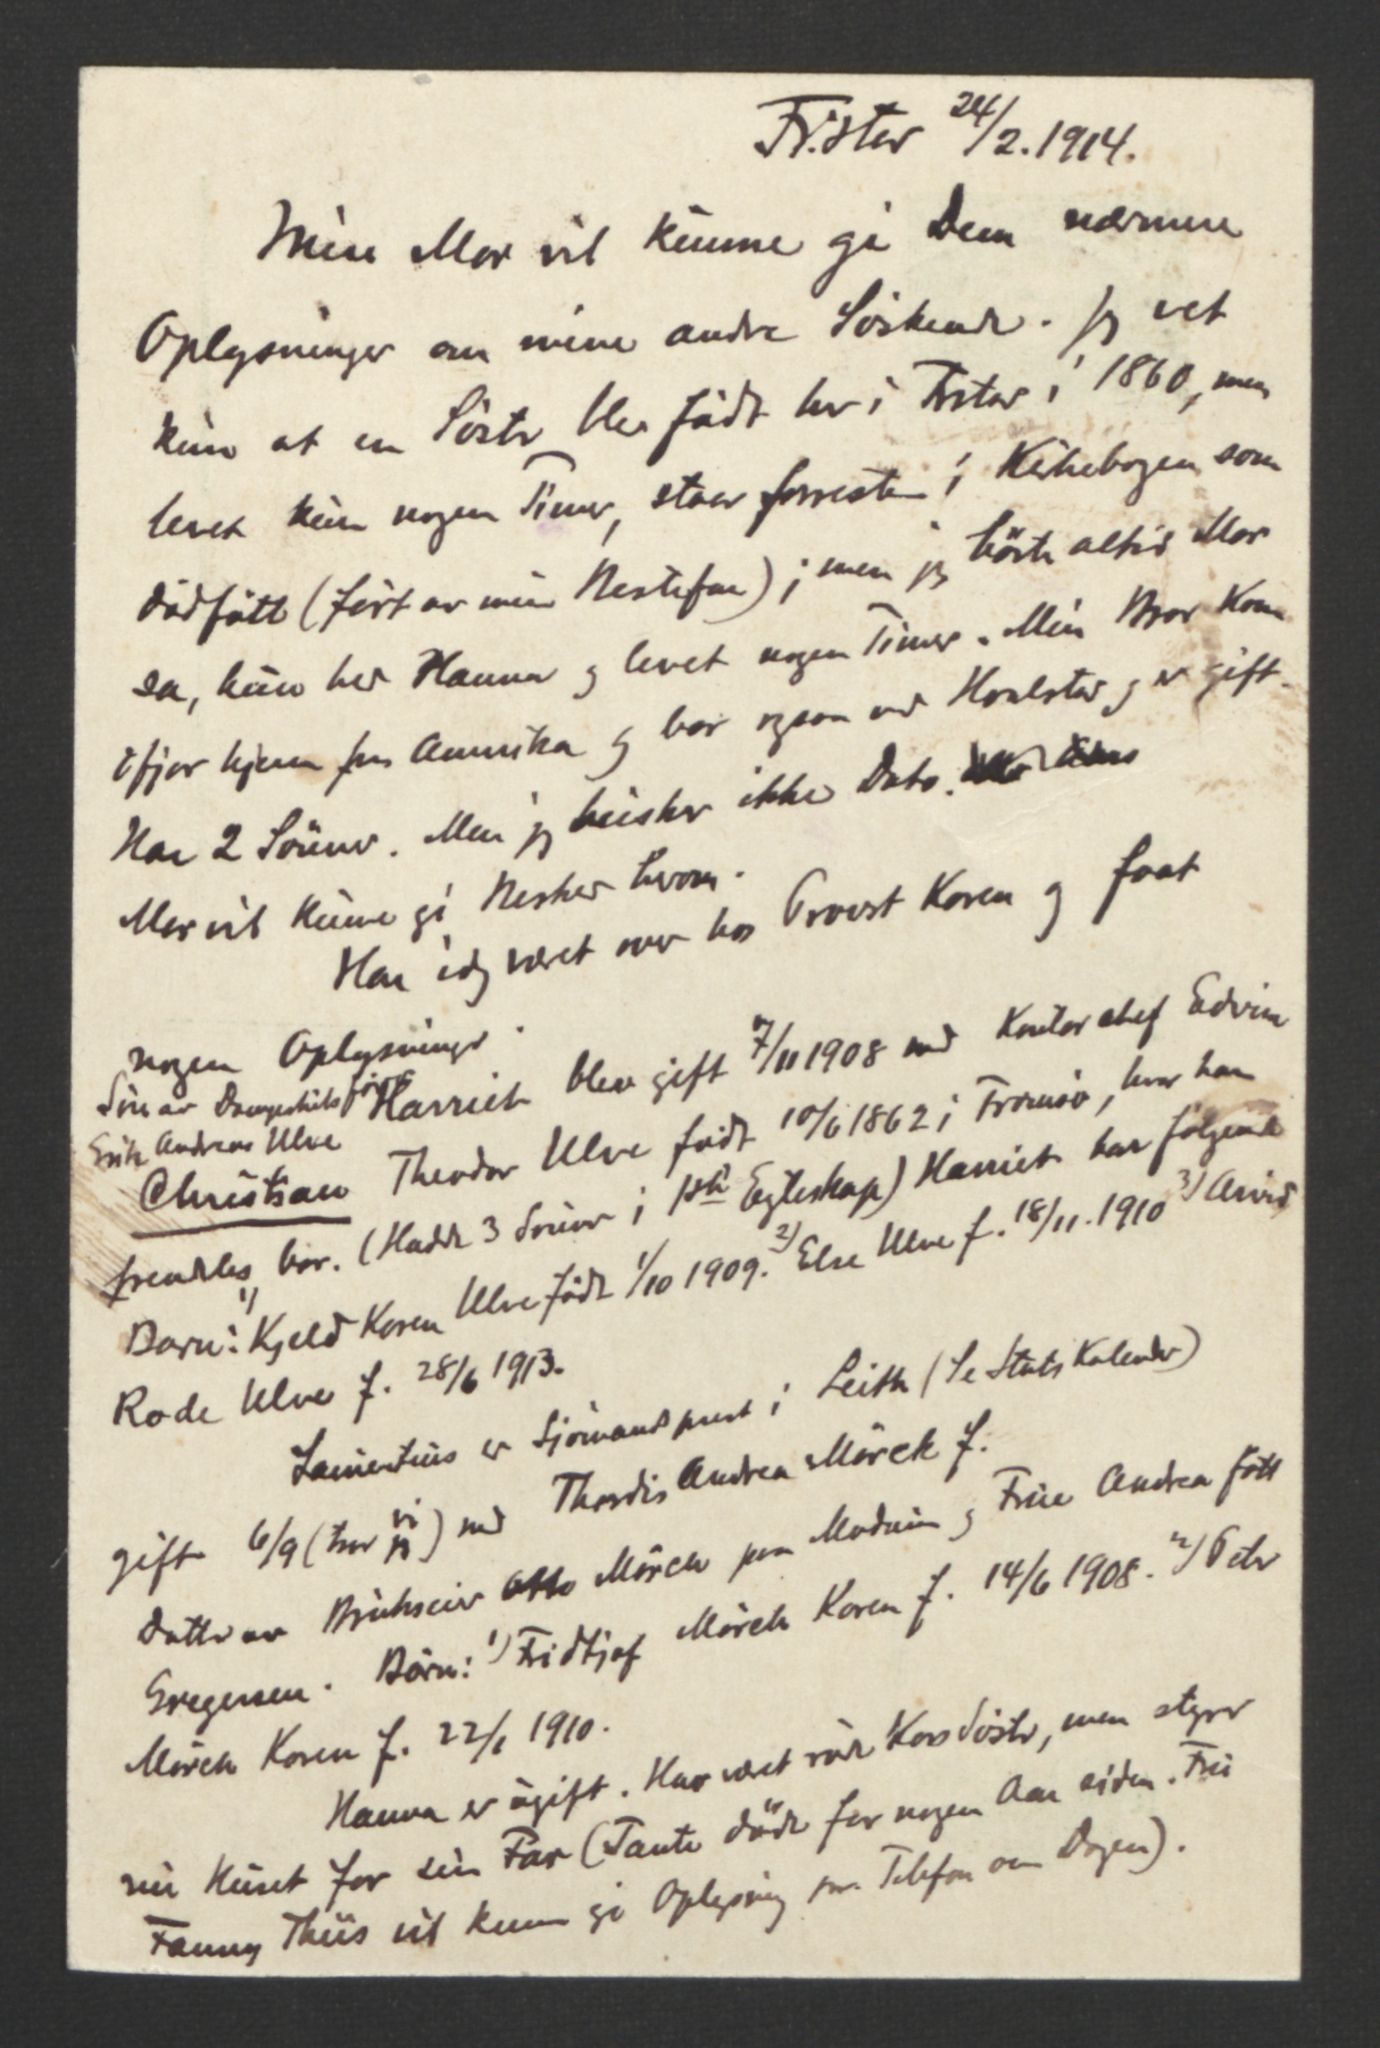 Fr.stav 24/2. 1914.
Min Mor vil kunne gi Dem nærmere
Oplysninger om mine andre Söskende. Jeg vet
kun at en Söster blev födt her i Frstav i 1860, men
levet kun nogen Timer, staar forresten i Kirkebogen som
dödfött (fört av min Bestefar); men jeg hörte altid Mor
sa, hun het Hanna og levet nogen Timer. Min Bror kom
ifjor hjem fra Amerika og bor ogsaa ved Harestad og er gift.
Har 2 Sönner. Men jeg husker ikke Dato.
Mor vil kunne gi Besked herom.
Har idag været over hos Provst Koren og faat
nogen Oplysninger.
Harriet blev gift 7/11 1908 med Kontorchef Edvin
Sön av Dampskibsförer
Erik Andreas Ulve
Christian Theodor Ulve födt 10/6 1862 i Tromsö, hvor han
fremdeles bor. (Hadde 3 Sönner i 1ste Egteskap) Harriet har fölgende
Barn: 1) Kjeld Koren Ulve födt 1/10 1909. 2) Else Ulve f. 18/11. 1910 3) Arvid
Rode Ulve f. 28/6 1913.
Laurentius er Sjömandsprest i Leith (Se Stats Kalender)
gift 6/9 (tror vi jeg) med Thordis Andrea Mörch f.
Datter av Brukseier Otto Mörch paa Modum og Frue Andrea fött
Gregersen. Börn: 1) Fridtjof Mörch Koren f. 14/6 1908. 2) Peter
Mörch Koren f. 22/1 1910.
Hanna er ugift. Har været röde Kors Söster, men styrer
nu Huset for sin Far (Tante döde for nogen Aar siden. Fru
Fanny Thiis vil kunne gi Oplysning pr. Telefon om Dagen).